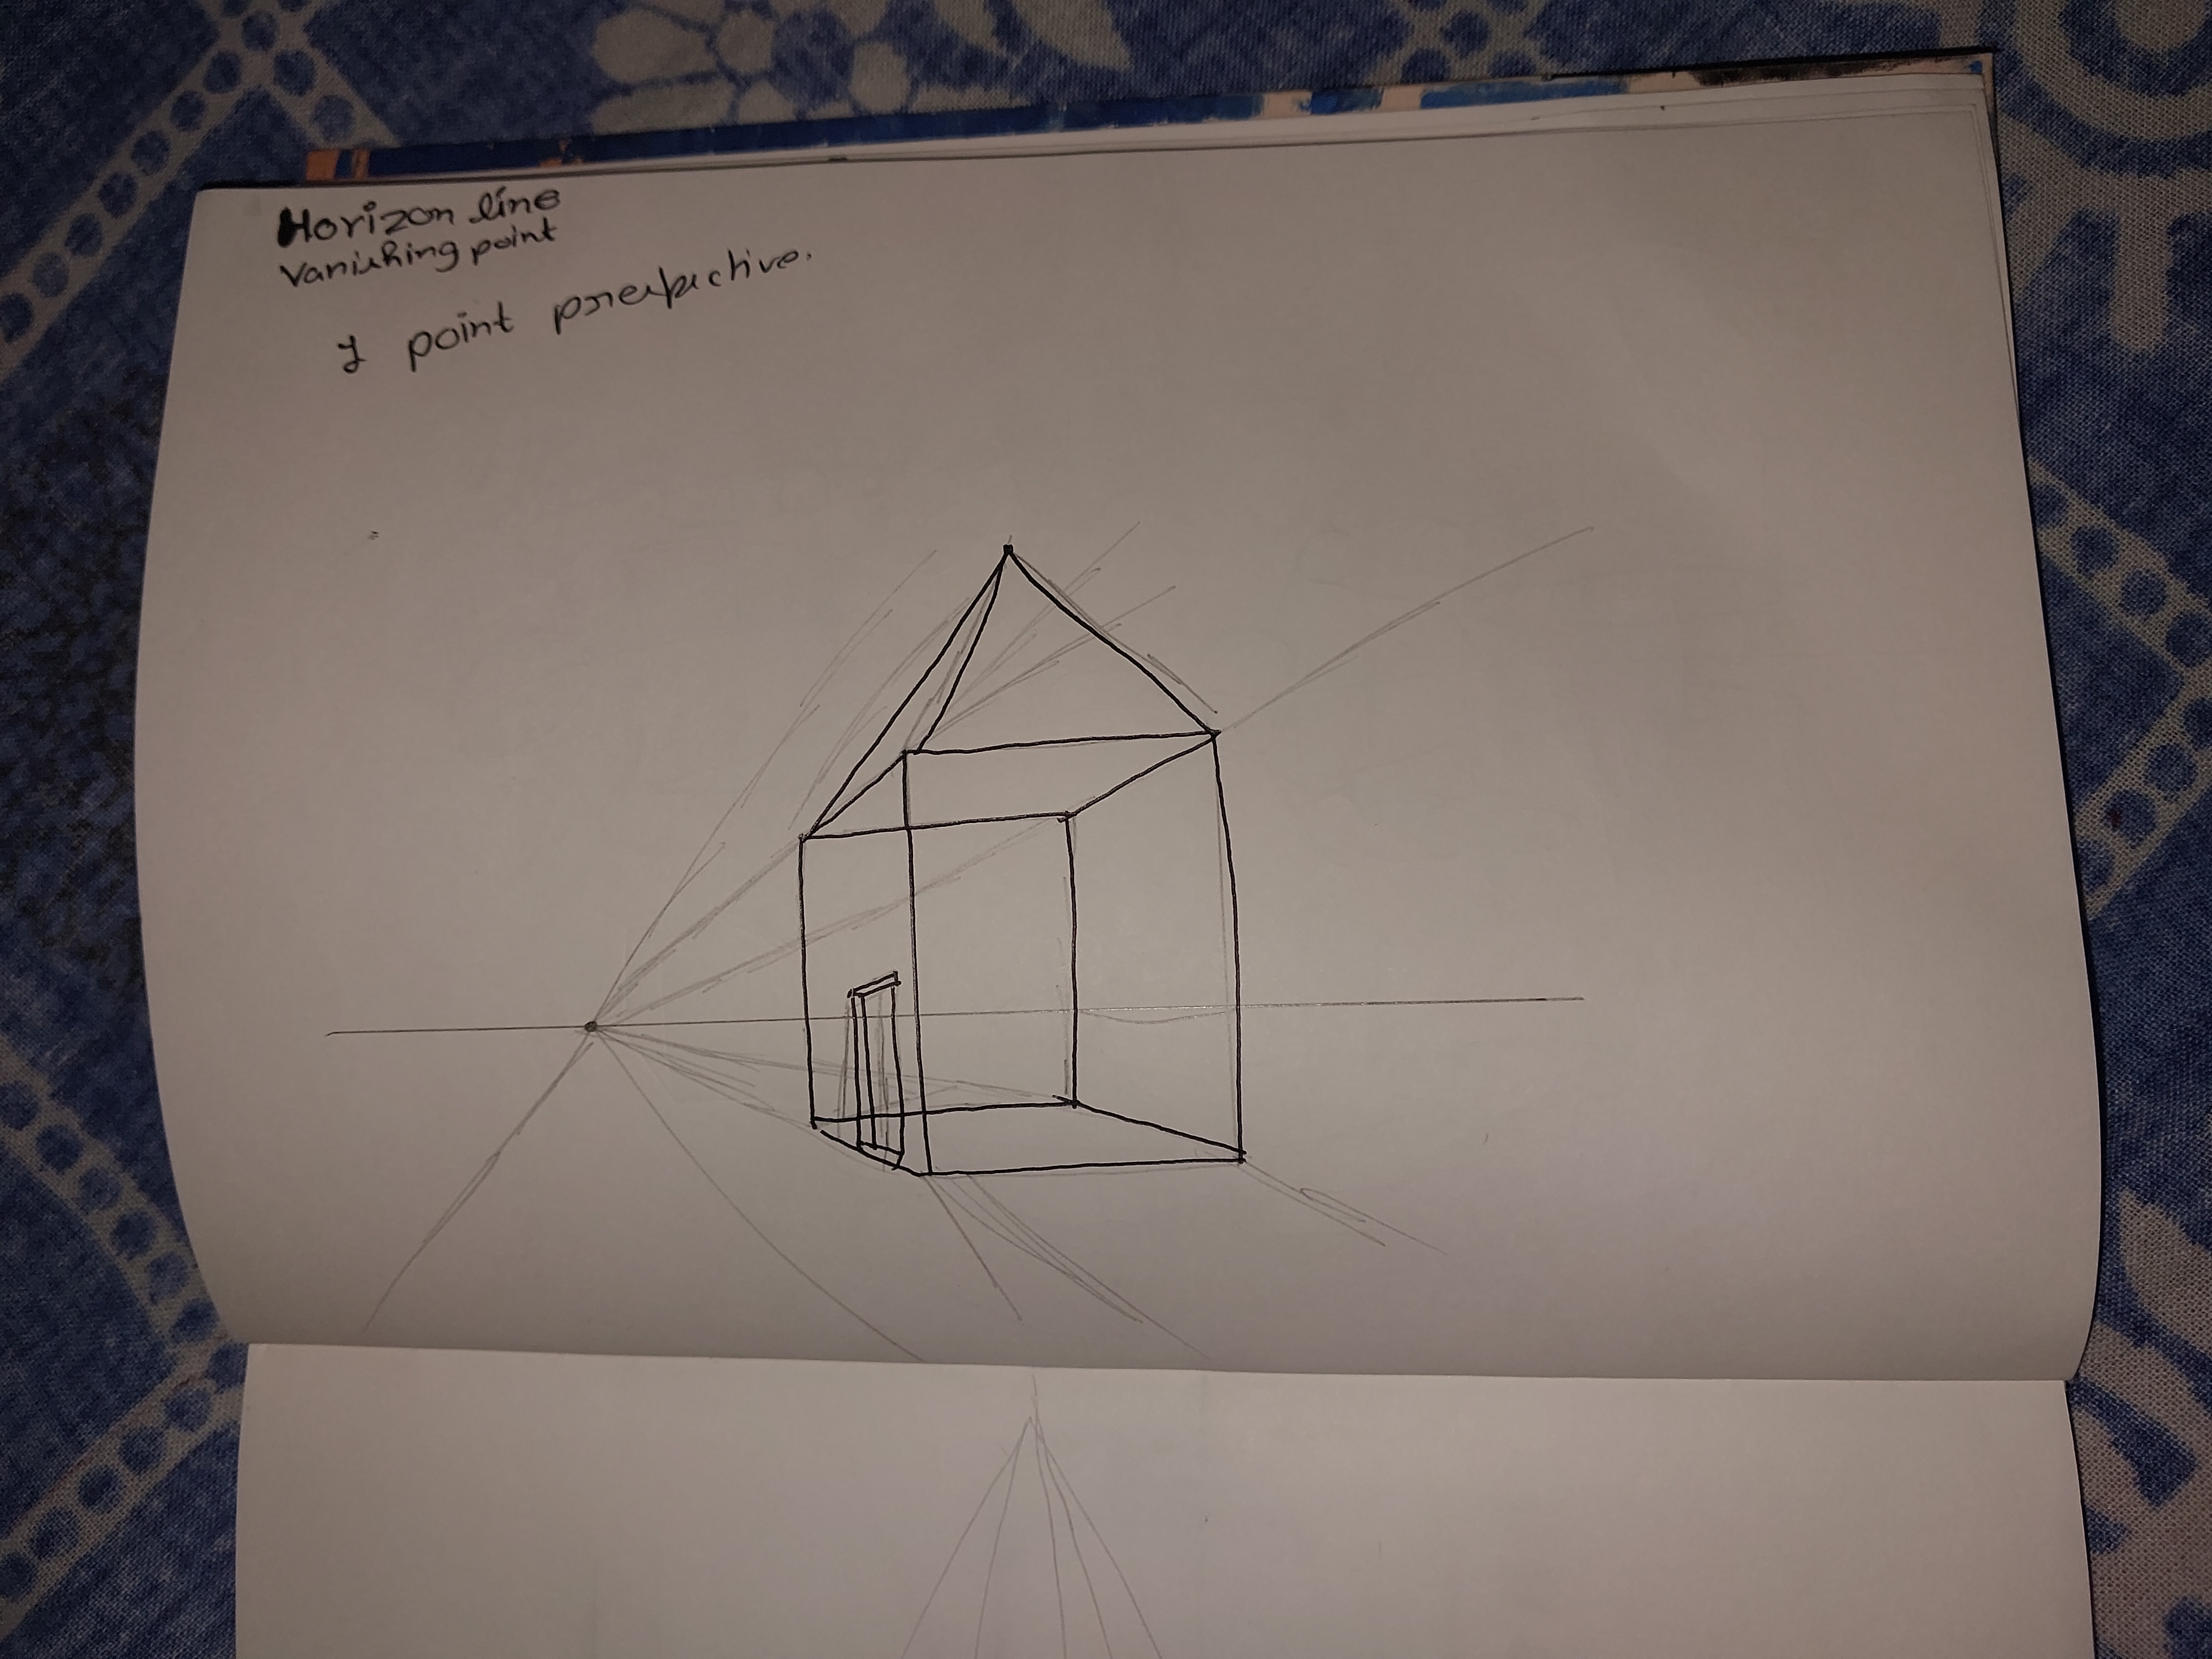 Horizon line
Vanishing point
1 point prerspective.